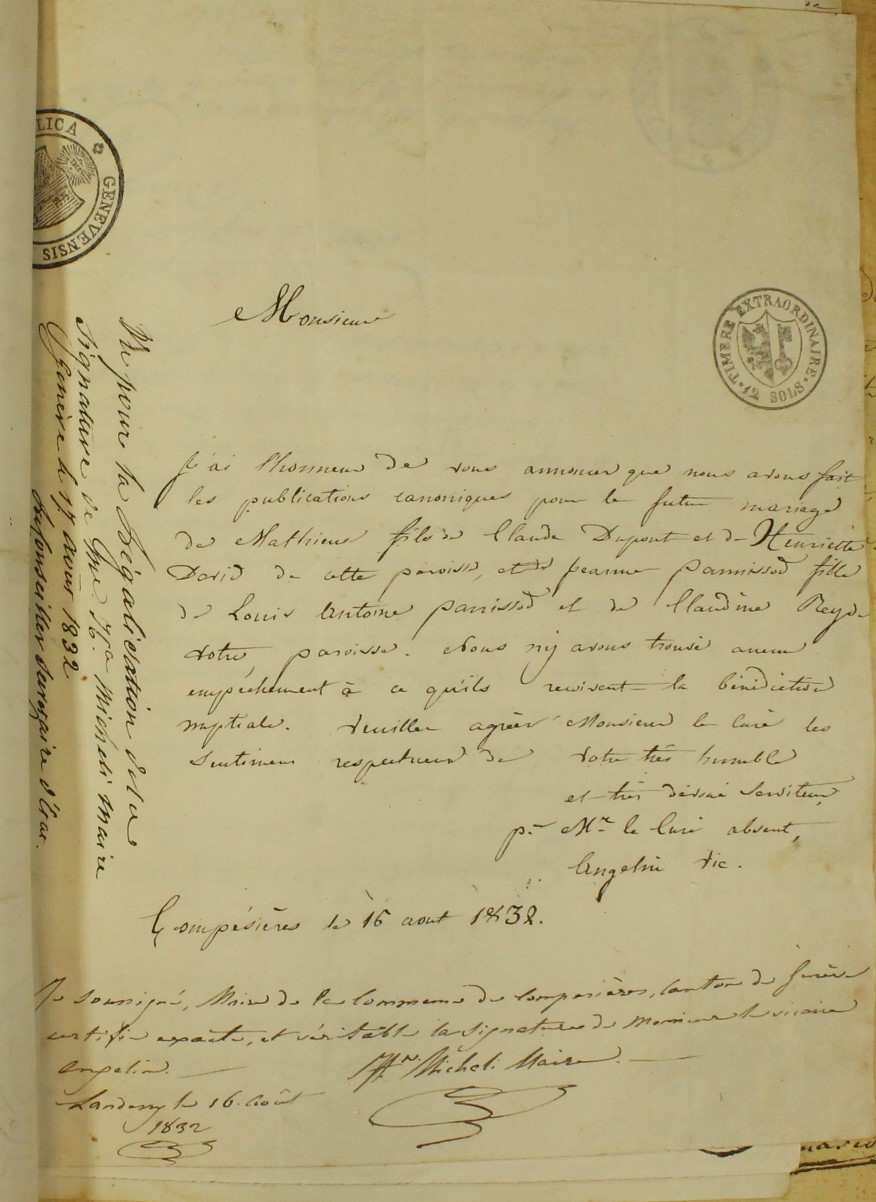 LICA GENEVENSIS
TIMBRE EXTRAORDINAIRE
12 SOLS
Monsieur
J'ai l'honneur de vous annoncer que nous avons fait
les publications canoniques pour le futur mariage
de Mathieu fils de Claude Dupont et de Henriette
David de cette paroisse, et de Jeanne Parrissod fille
de Louis Antoine Parrissod et de Claudine Rey de
votre paroisse. Nous n'y avons trouvé aucun
empéchement à ce qu'ils reçoivent la bénédiction
nuptiale. Veuillez agréer Monsieur le curé les
Sentimens respectueux de votre très humble
et très dévoué Serviteur,
pr Mr le Curé absent,
Angelin vic.
Compésières le 16 aout 1832.
Je soussigné, Maire de la Commune de Compesières, Canton de Genève
certifie exacte, et véritable la signature de Monsieur le vicaire
Angelin.
Mn Micheli Maire.
Landecy le 16 août
1832
Vu pour la Légalisation de la
Signature de Mr Micheli maire
Genève le 17 août 1832
d'Etat.